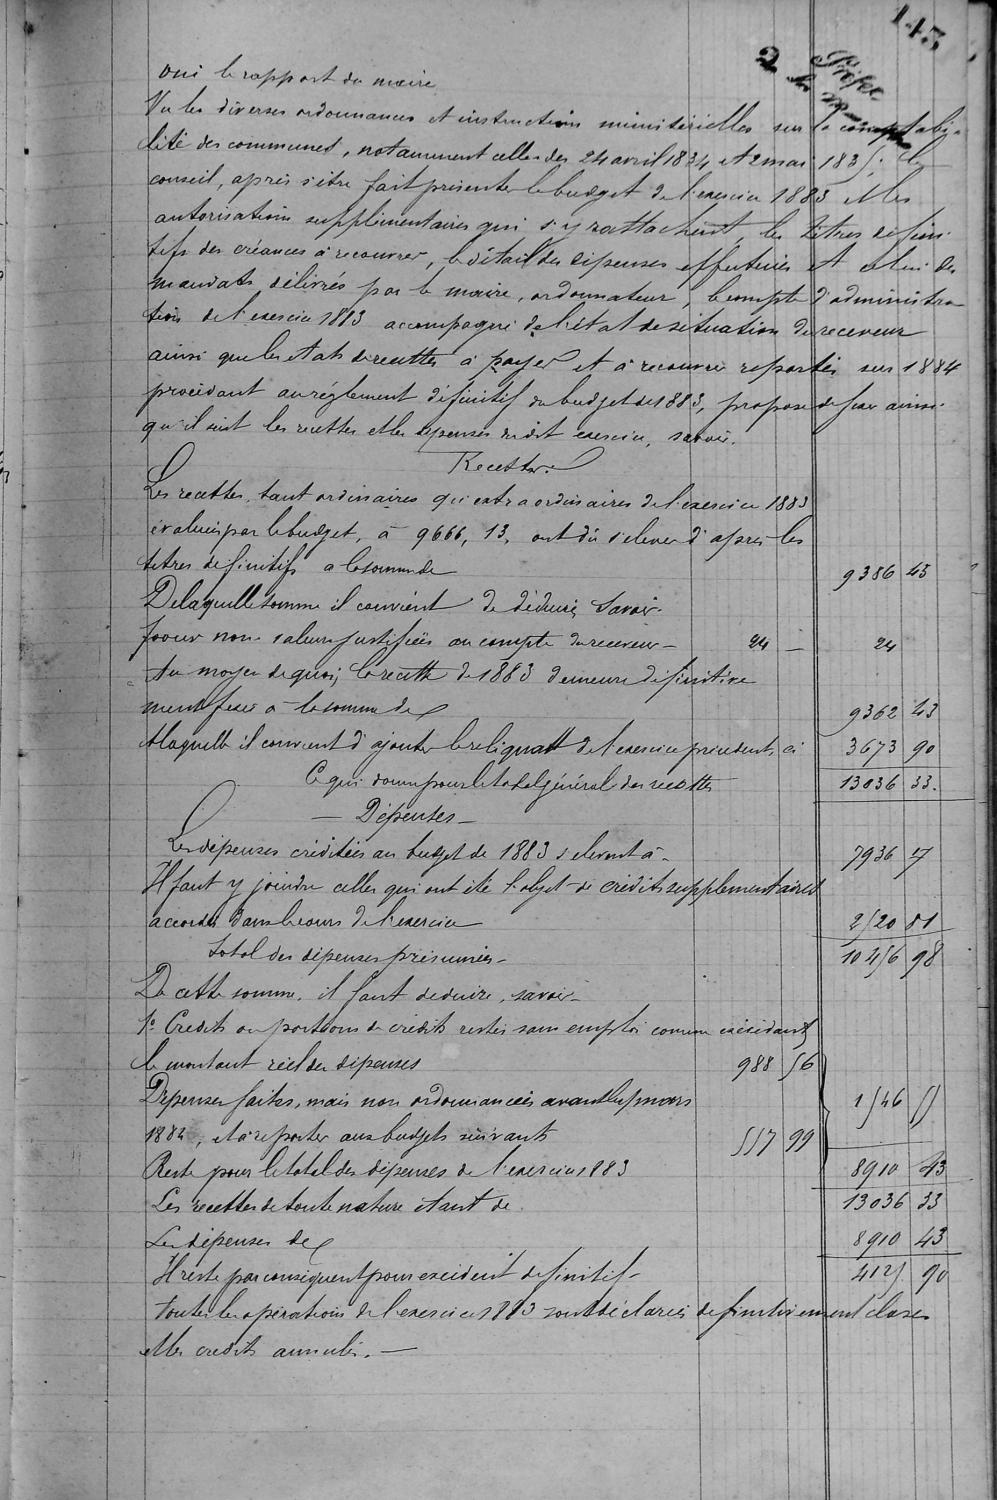 143
2
Préfet
ouï le rapport du maire
Vu les diverses ordonnances et instructions ministérielles sur la comptabi-
lité des communes, notamment celles des 24 avril 1834 et 2 mai 1835; le
conseil, après s'être fait présenter le budget de l'exercice 1883 et les
autorisations supplémentaires qui s'y rattachent, les titres défini-
tifs des créances à recouvrer, le détail des dépenses effectuées et celui des
mandats délivrés par le maire, ordonnateur, le compte d'administra-
tion de l'exercice 1883 accompagné de l'état de situation du receveur
ainsi que les états de recettes à payer et à recouvrer reportés sur 1884
procédant au règlement définitif du budget de 1883, propose de fixer ainsi
qu'il suit les recettes et les dépenses du dit exercice, savoir.
Recettes
Les recettes, tant ordinaires qu'extraordinaires de l'exercice 1883
évaluées par le budget, à 9666,13, ont dû s'élever d'après les
titres définitifs a la somme de 9386 43
De laquelle somme il convient de déduire, savoir.
pour non-valeurs justifiées au compte du receveur - 24 - 24
Au moyen de quoi, la recette de 1883 demeure définitive
ment fixée à la somme de 9362 43
A laquelle il convient d'ajouter le reliquat de l'exercice précédent, ci 3673 90
Ce qui donne pour le total général des recettes 13036 33.
- Dépenses -
Les dépenses créditées au budget de 1883 s'élevent à - 7936 17
Il faut y joindre celles qui ont été l'objet de crédits supplémentaires
accordés dans le cours de l'exercice 2520 81
Total des dépenses présumées - 10456 98
De cette somme, il faut déduire, savoir -
1° Crédits ou portions de crédits restés sans emploi comme excédant
le montant réel des dépenses 988 56
Dépenses faites, mais non ordonnancées avant le 15 mars 1546 55
1884, et à reporter aux budgets suivants 557 99
Reste pour le total des dépenses de l'exercice 1883 8910 43
Les recettes de toute nature étant de 13036 33
Les dépenses de 8910 43
Il reste par conséquent pour excédent définitif - 4125 90
Toutes les opérations de l'exercice 1883 sont déclarées définitivement closes
et les crédits annulés. -